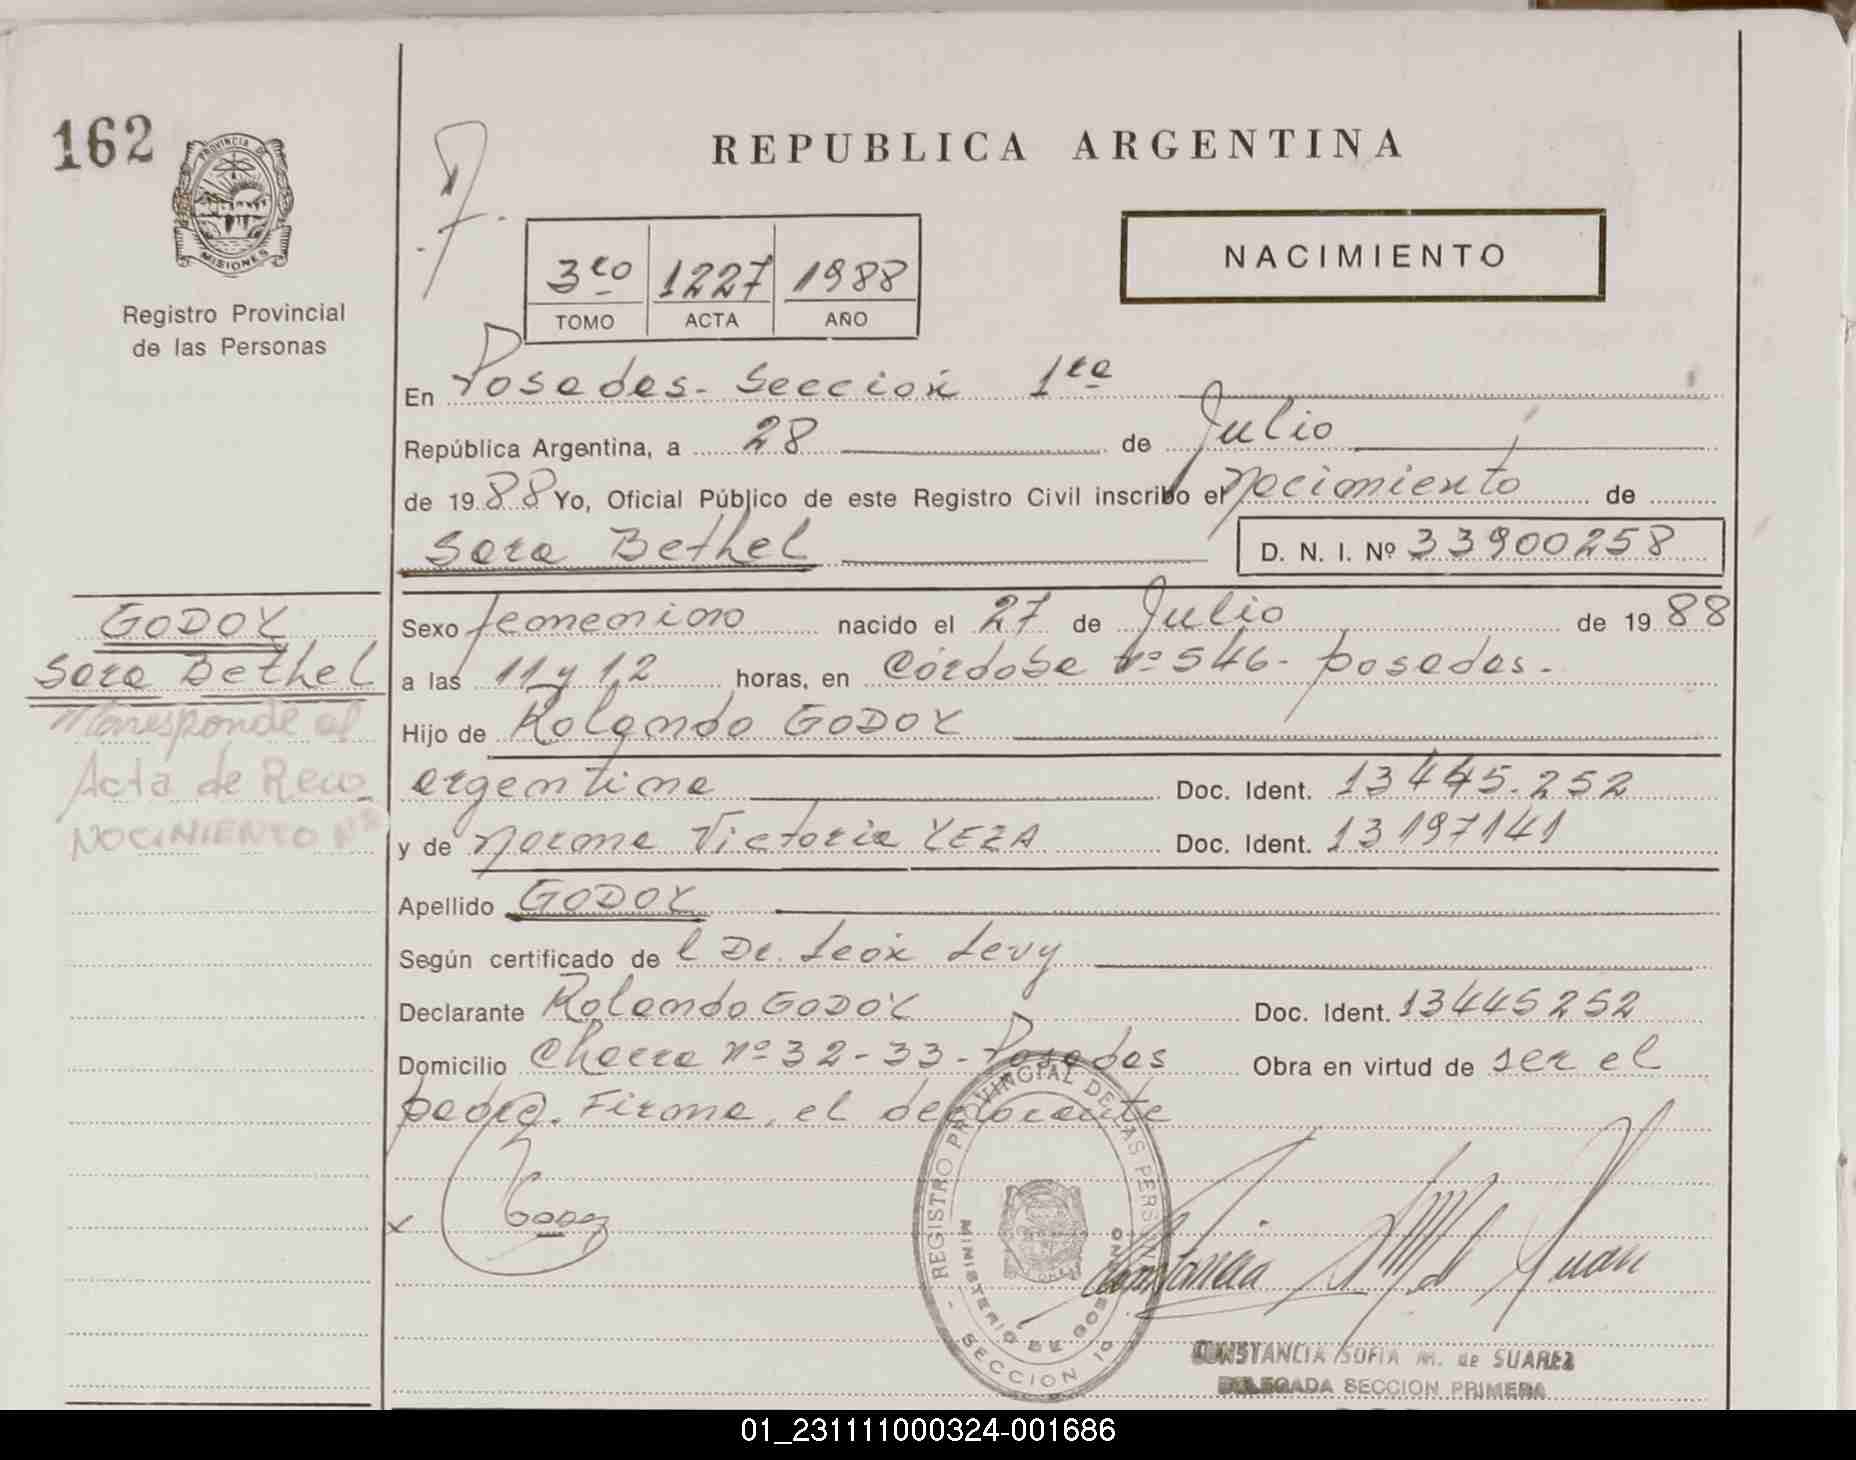 162
PROVINCIA DE
MISIONES
Registro Provincial
de las Personas
REPUBLICA ARGENTINA
NACIMIENTO
3ro 1227 1988
TOMO ACTA AÑO
En Posadas - Sección 1ra
República Argentina, a 28 de Julio
de 1988 Yo, Oficial Público de este Registro Civil inscribo el nacimiento de
Sara Bethel D. N. I. Nº 33900258
GODOY
Sara Bethel
Corresponde al
Acta de Reco
NOCIMIENTO Nº
Sexo femenino nacido el 27 de Julio de 1988
a las 11 y 12 horas, en Córdoba Nº 546 - posadas -
Hijo de Rolando GODOY
argentina Doc. Ident. 13445.252
y de Norma Victoria YEZA Doc. Ident. 13197141
Apellido GODOY
Según certificado de l Dr. León Levy
Declarante Rolando GODOY Doc. Ident. 13445252
Domicilio Chacra Nº 32-33- Posadas Obra en virtud de ser el
padre. Firma, el declarante
x Godoy
REGISTRO PROVINCIAL DE LAS PERSONAS
MINISTERIO DE GOBIERNO
SECCION 1a
Constancia S M de Suarez
CONSTANCIA SOFIA M. de SUAREZ
DELEGADA SECCION PRIMERA
01_231111000324-001686